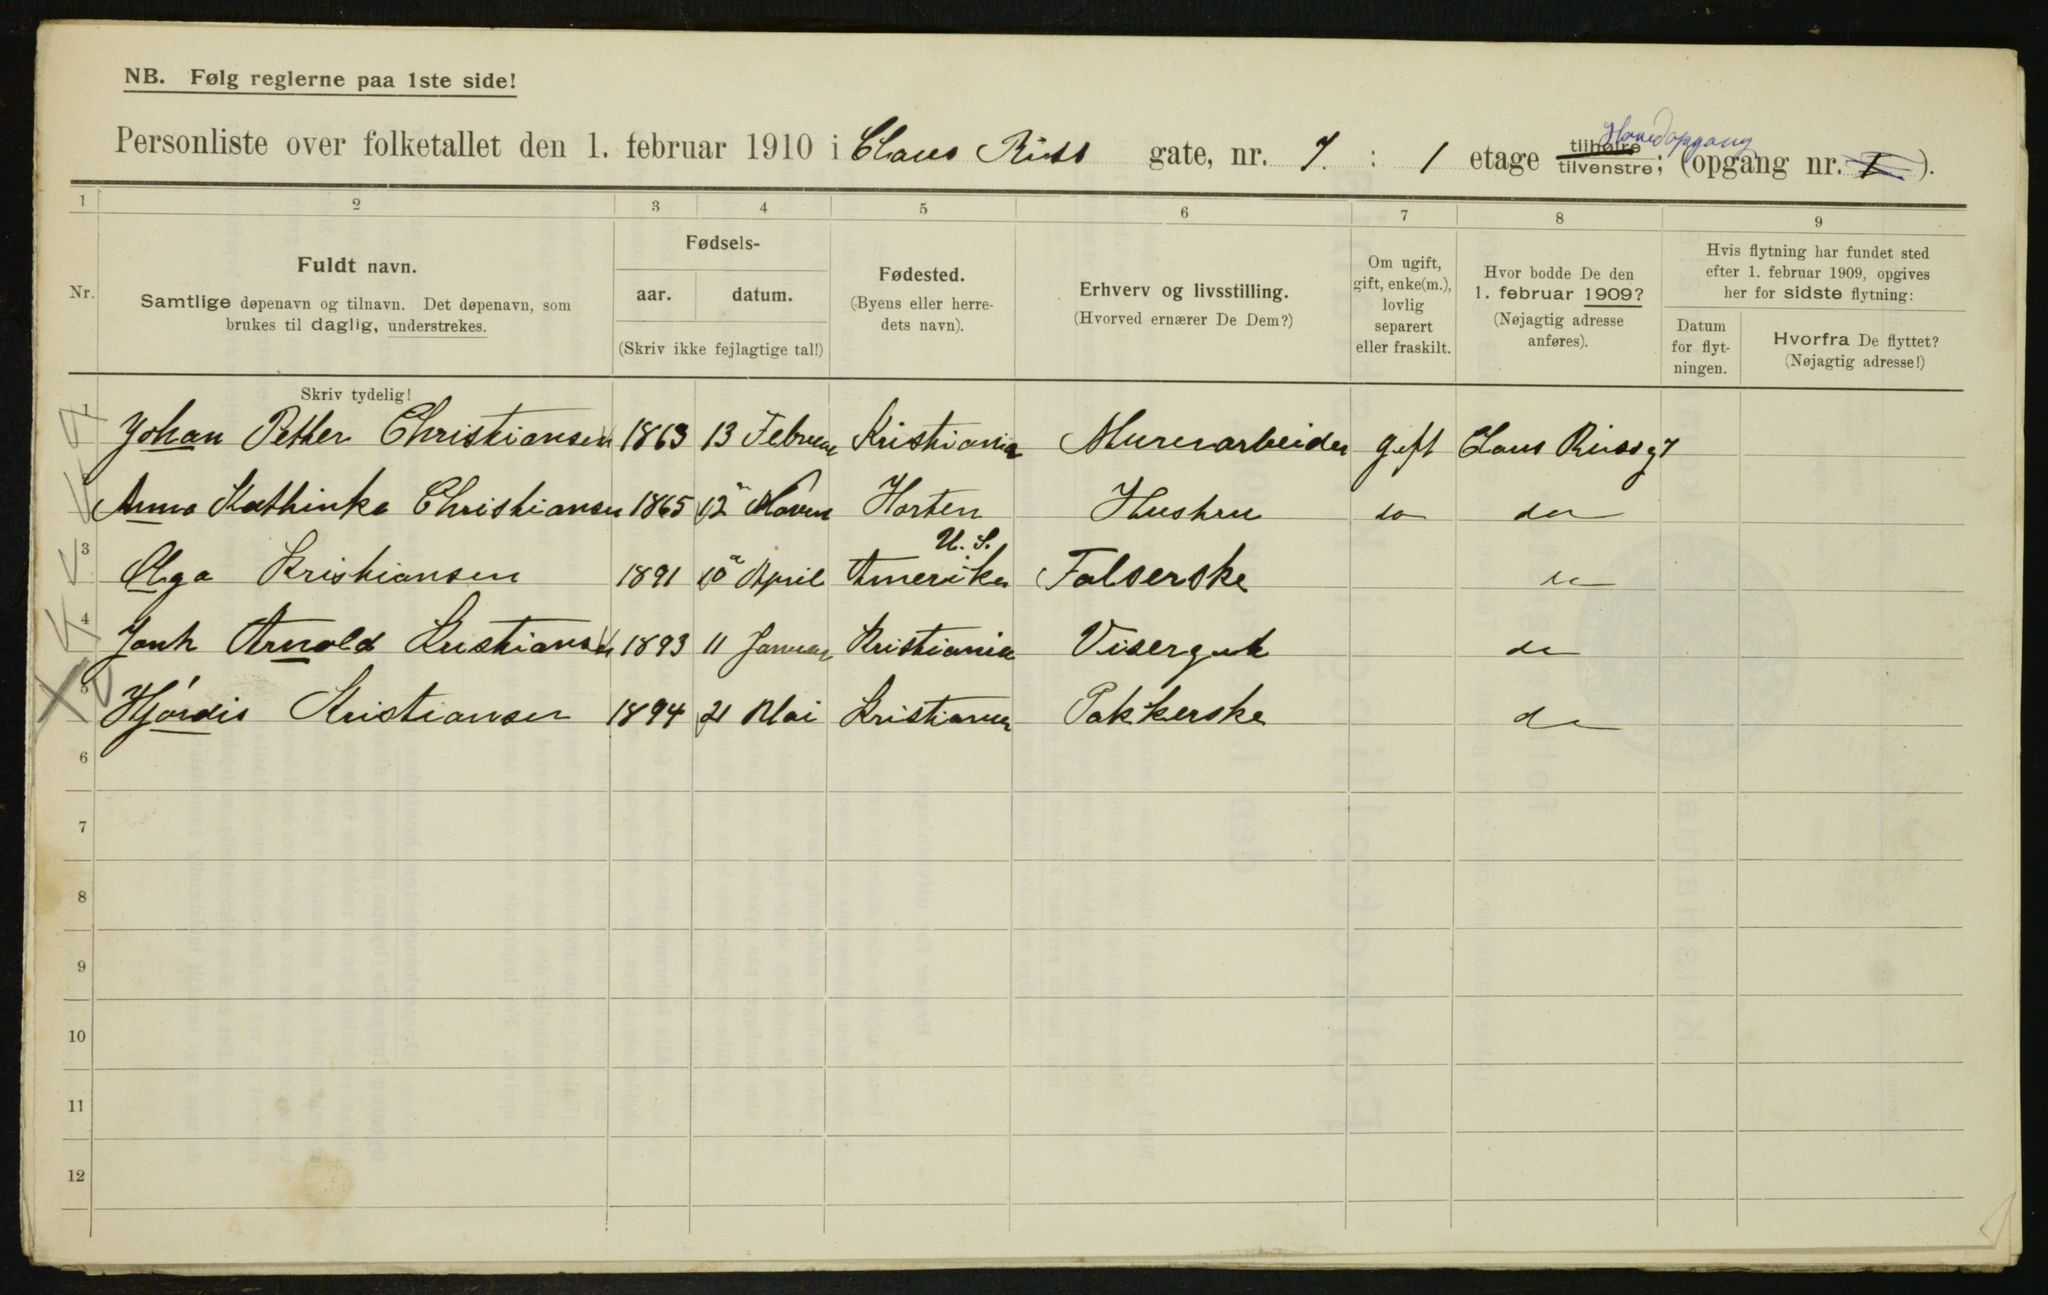 NB. Følg reglerne paa 1ste side!
Personliste over folketallet den 1. februar 1910 i Claus Riiss gate, nr. 7. : 1 etage tilhøire tilvenstre; (opgang nr. 1).
Hovedopgang
1 2 3 4 5 6 7 8 9
Nr.
Fuldt navn.
Samtlige døpenavn og tilnavn. Det døpenavn, som
brukes til daglig, understrekes.
Fødsels-
aar. datum.
(Skriv ikke fejlagtige tal!)
Fødested.
(Byens eller herre-
dets navn).
Erhverv og livsstilling.
(Hvorved ernærer De Dem?)
Om ugift,
gift, enke(m.),
lovlig
separert
eller fraskilt.
Hvor bodde De den
1. februar 1909?
(Nøjagtig adresse
anføres).
Hvis flytning har fundet sted
efter 1. februar 1909, opgives
her for sidste flytning:
Datum
for flyt-
ningen.
Hvorfra De flyttet?
(Nøjagtig adresse!)
Skriv tydelig!
1 Johan Pether Christiansen 1863 13 Februar Kristiania Murerarbeider gift Claus Riiss g 7
Anna Kathinka Christiansen 1865 12 Novem Horten Hustru do do
3 Olga Kristiansen 1891 10 April U. S. Amerika Falserske do
4 Arnold Kristiansen 1893 11 Januar Kristiania Visergut do
5 Hjórdis Kristiansen 1894 21 Mai Kristiania Pakkerske do
6
7
8
9
10
11
12